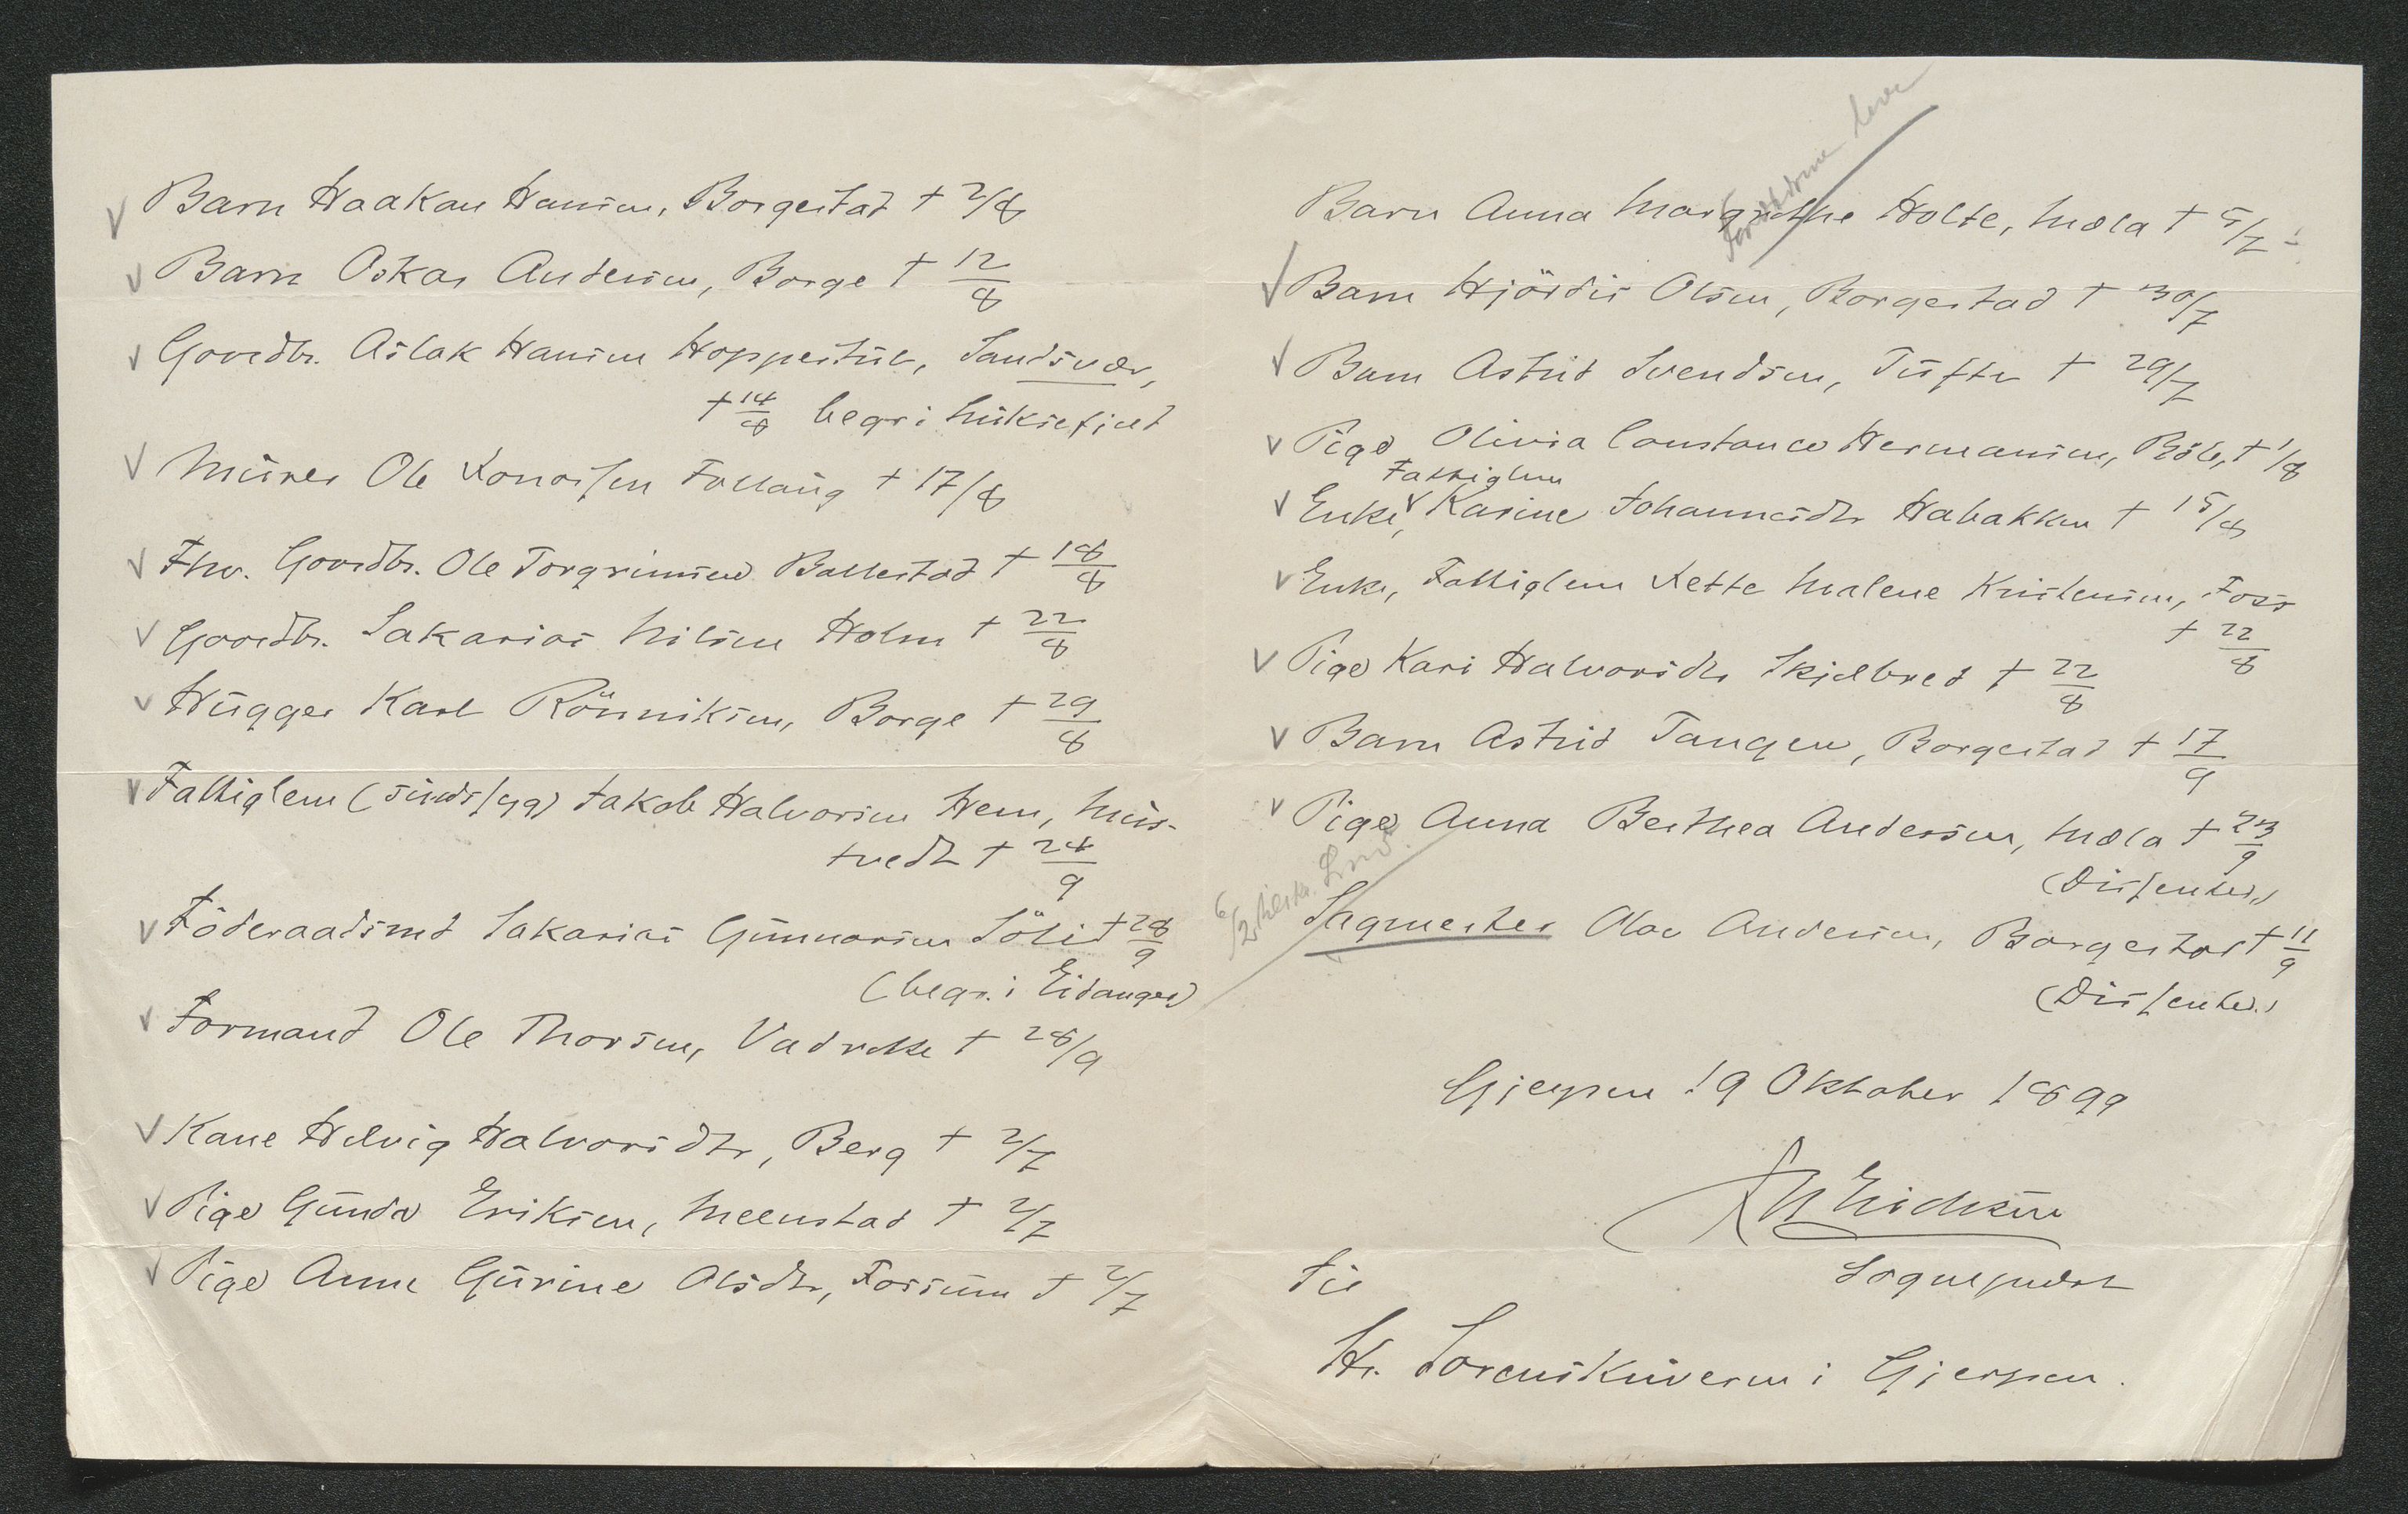 Barn Haakon Hansen, Borgestad † 2/8
Barn Oskar Andersen, Borge † 12/8
Gaardbr. Aslak Hansen Hoppestul, Sandsvær,
† 14/8 begr. i Luksefjeld
Murer Ole Konorssen Follaug † 17/8
Fhv. Gaardbr. Ole Torgrimsen Ballestad † 18/8
Gaardbr. Sakarias Nilsen Holm † 22/8
Hugger Karl Rönniksen, Borge † 29/8
Fattiglem (sindssyg) Jakob Halvorsen Hem, Mus-
tvedt † 24/9
Föderaadsmd Sakarias Gunnarsen Sölid † 28/9
(begr. i Eidanger)
Formand Ole Thorsen, Vadrette † 28/9
Kone Helvig Halvorsdtr, Berg † 2/7
Pige Gunda Eriksen, Meenstad † 2/7
Pige Anne Gurine Olsdtr, Fossum † 2/7
Foreldrene leve
Barn Anna Margrethe Holte, Mæla † 5/7
Barn Hjördis Olsen, Borgestad † 30/7
Barn Astrid Svendsen, Tufte † 29/7
Pige Olivia Constance Hermansen, Böle, † 1/8
Fattiglem
Enke, Karine Johannesdtr Habakken † 15/8
Enke, Fattiglem Jette Malene Kristensen, Foss
† 22/8
Pige Kari Halvorsdtr Skjelbred † 22/8
Barn Astrid Tangen, Borgestad † 17/9
Pige Anna Berthea Andersen, Mæla † 23/9
(Dissenter)
Sagmester Olav Andersen, Borgestad † 11/9
(Dissenter)
Gjerpen 19 Oktober 1899
Erichsen
Sogneprest
Til
Hr. Lorenskriveren i Gjerpen.